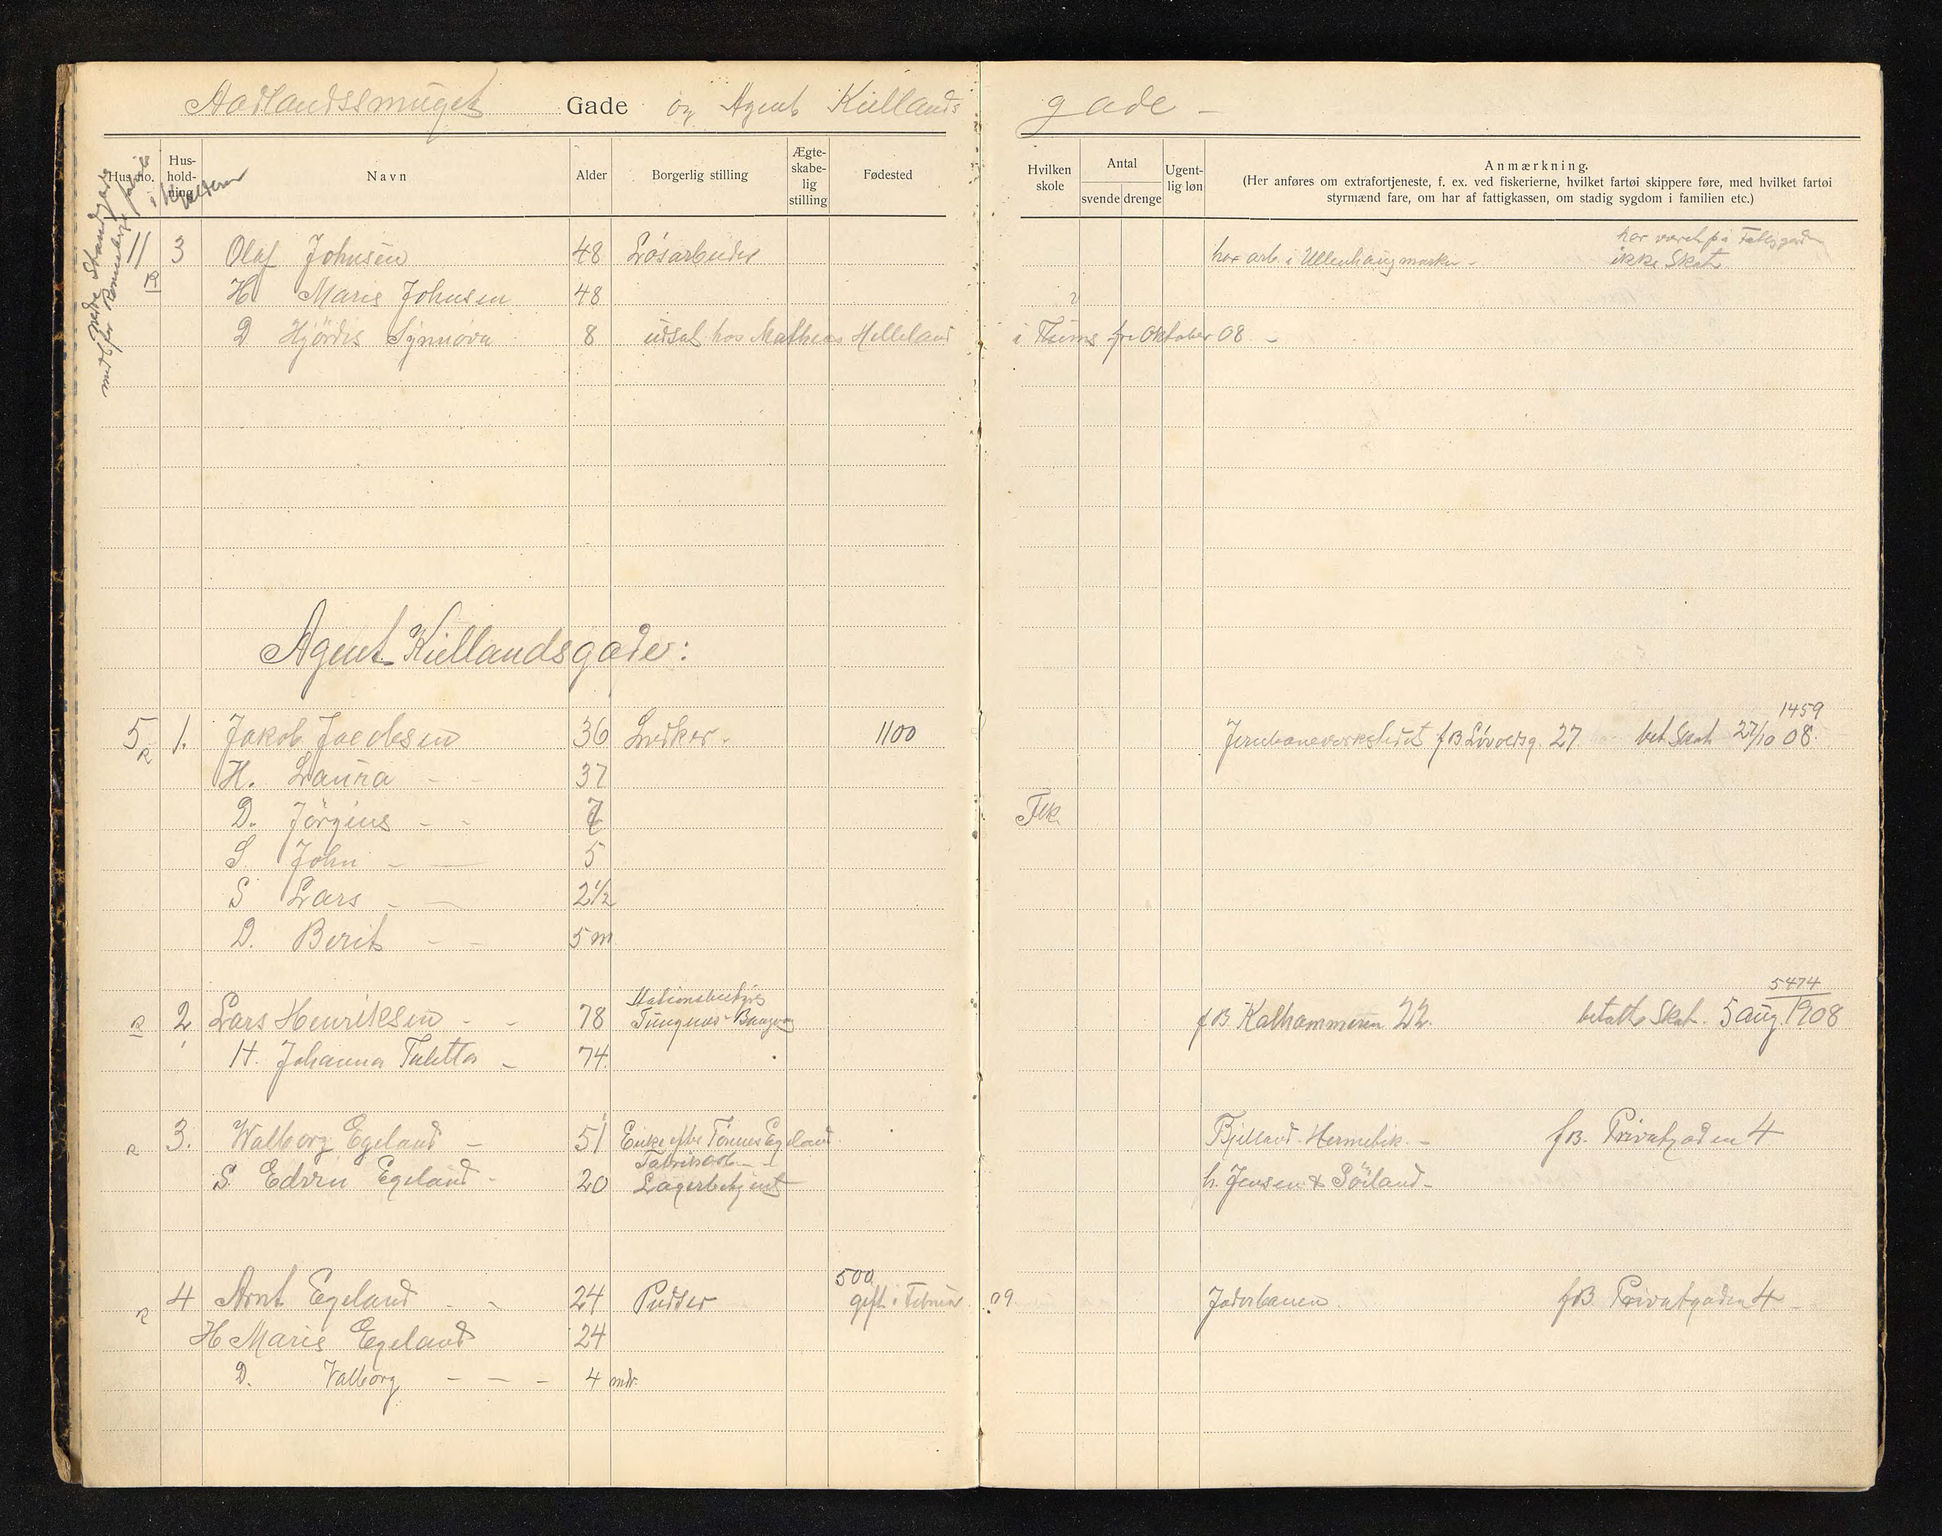 Aadlandssmuget Gade og Agent Kiellands gade -
Hus no. Hus-hold-ning Navn Alder Borgerlig stilling Ægte-skabe-lig stilling Fødested Hvilken skole Antal svende drenge Ugent-lig løn Anmærkning.
(Her anføres om extrafortjeneste, f. ex. ved fiskerierne, hvilket fartøi skippere føre, med hvilket fartøi
styrmænd fare, om har af fattigkassen, om stadig sygdom i familien etc.)
i Kjelderen
11 3 Olaf Johnsen 48 Løsarbeider har arb. i Ullenhaugmarken - har været på Fattiggården
ikke Skat.
R H Marie Johnsen 48
D Hjördis Synnöva 8 udsat hos Mathias Helleland i Thime fra Oktober 08 -
Agent Kiellandsgade:
5 R 1. Jakob Jacobsen 36 Snedker. 1100 Jernbaneverkstedet fB Løvoldsg. 27 bet Skat 27/10 08. 1459
H. Laura - - 37
D. Jörgine - - 7 Flk.
S. John - - 5
S Lars - - 2 1/2
D. Berit - - 5 m
R 2 Lars Henriksen - - 78 Stationsbestyrer
Tungenes fB Kalhammeren 22. betalte Skat. 5 aug. 1908 5474
H. Johanna Taletta - 74.
R 3. Walborg Egeland - 51 Enke efter Tønnes Egeland Bjelland Hermetik. - fB. Privatgaden 4
Fabrikarb -
S. Edvin Egeland - 20 Lagerbetjent h. Jensen & Böiland -
R 4 Arnt Egeland - - 24 Pudser 500
gift i Februar 09. Jæderbanen. fB Privatgaden 4 -
H Marie Egeland 24
D. Valborg - - - 4 mdr.